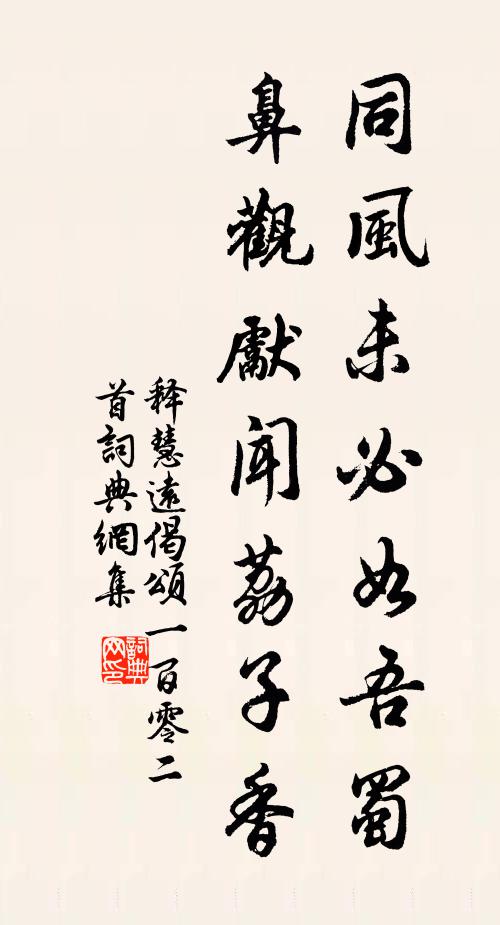 同風未必如吾蜀
鼻觀獻聞荔子香
释慧遠偈頌一百零二
首詞典網集
詞典
网印